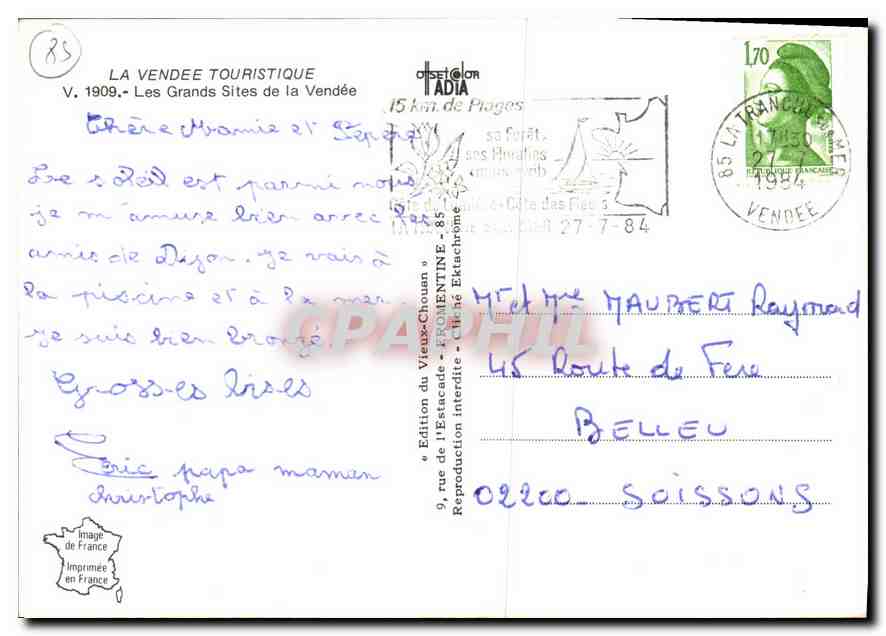 85
LA VENDEE TOURISTIQUE
V. 1909.- Les Grands Sites de la Vendée
OffsetColor
ADIA
Chère Mamie et Pepere
Le soleil est parmi nous
je m'amuse bien avec les
amis de Dijon. Je vais à
la piscine et à la mer.
Je suis bien bronzé.
Grosses bises
Eric papa maman
christophe
Image
de France
Imprimée
en France
« Edition du Vieux-Chouan »
9, rue de l'Estacade - FROMENTINE - 85
Reproduction interdite - Cliché Ektachrome
15 km. de Plages
sa Forêt
ses Floralies
27-7-84
1,70
REPUBLIQUE FRANCAISE
85 LA TRANCHE S MER
17H30
27-7
1984
VENDEE
Mr et Mme MAUBERT Raymond
45 Route de Fere
BELLEU
02200 SOISSONS
CPAPHIL